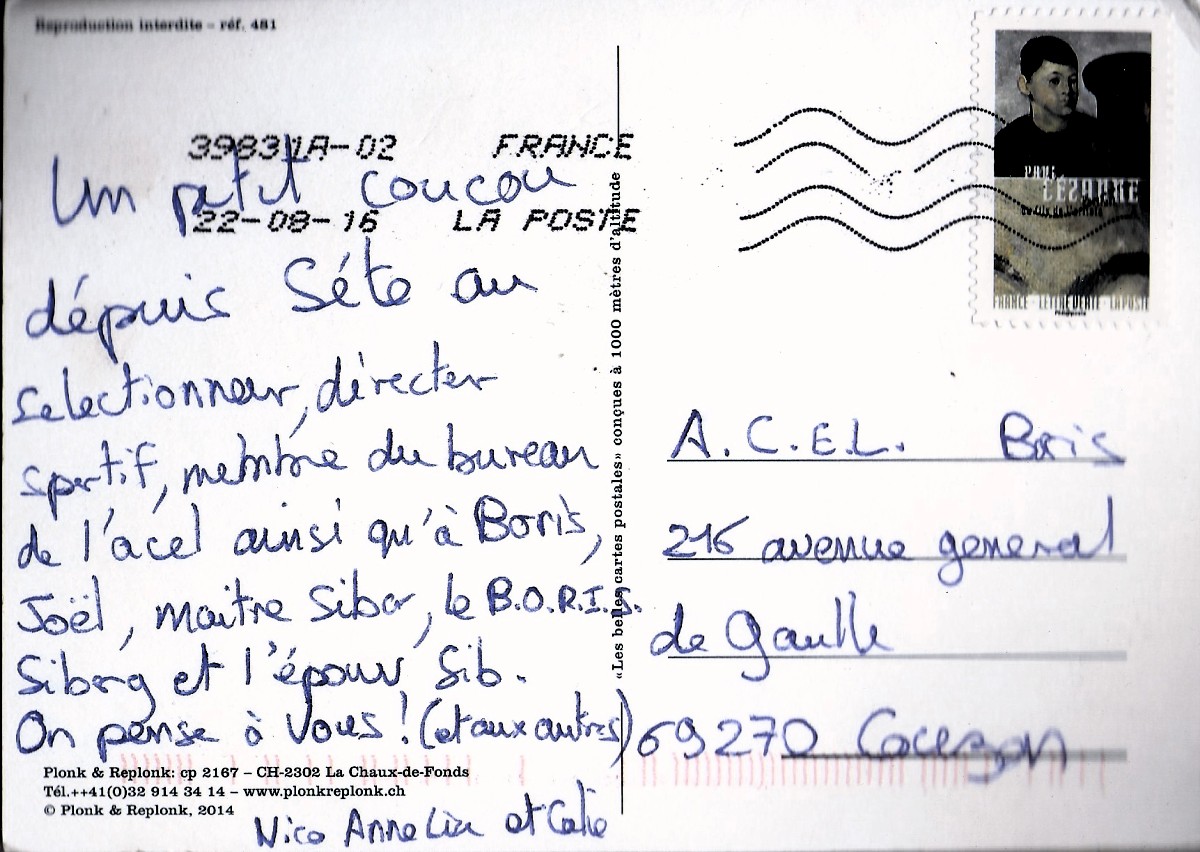 Reproduction interdite – réf. 481
39831A-02 FRANCE
22-08-16 LA POSTE
Un petit coucou
dépuis Séte au
selectionneur, directer
sportif, membre du bureau
de l'acel ainsi qu'à Boris,
Joël, maitre Sibor, le B.O.R.I.S.
Siborg et l'époux Sib.
On pense à vous ! (et aux autres)
Nico Anne Lia et Catie
Plonk & Replonk: cp 2167 – CH-2302 La Chaux-de-Fonds
Tél.++41(0)32 914 34 14 – www.plonkreplonk.ch
© Plonk & Replonk, 2014
«Les belles cartes postales» conçues à 1000 mètres d'altitude
PAUL
CÉZANNE
FRANCE - LETTRE VERTE - LA POSTE
A.C.E.L. Boris
216 avenue general
de Gaulle
69270 Couzon